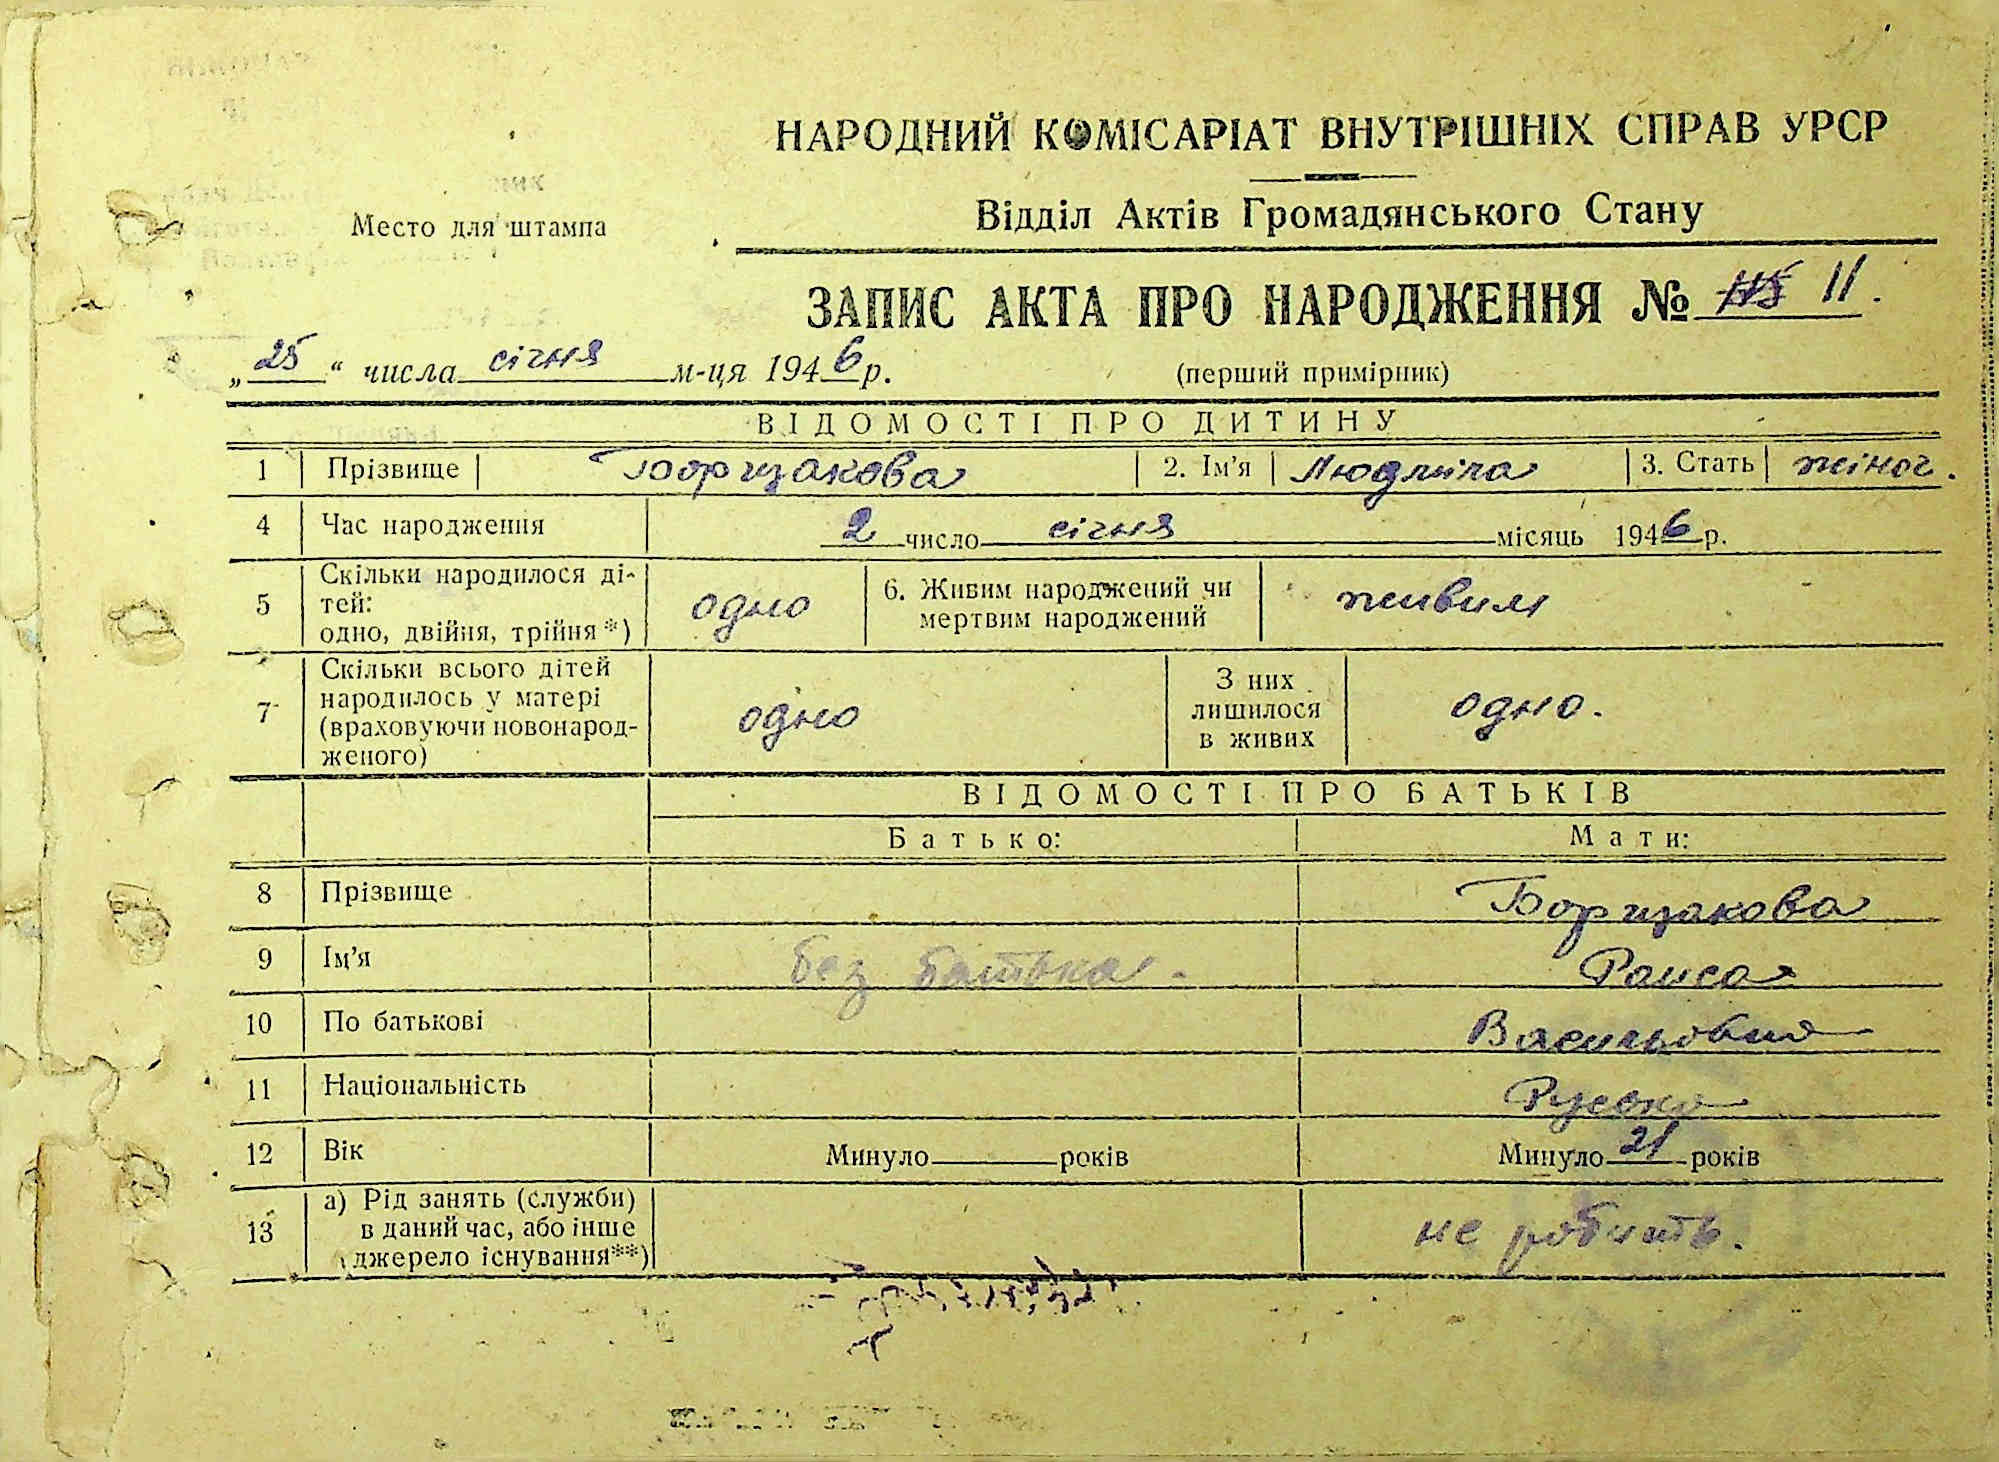 НАРОДНИЙ КОМІСАРІАТ ВНУТРІШНІХ СПРАВ УРСР
Место для штампа
Відділ Актів Громадянського Стану
ЗАПИС АКТА ПРО НАРОДЖЕННЯ № 11.
„25“ числа січня м-ця 1946 р.
(перший примірник)
ВІДОМОСТІ ПРО ДИТИНУ
1 Прізвище Борщакова 2. Ім'я Людмила 3. Стать жіноч.
4 Час народження 2 число січня місяць 1946 р.
5 Скільки народилося ді-
тей:
одно, двійня, трійня*)
одно
6. Живим народжений чи
мертвим народжений
живим
7 Скільки всього дітей
народилось у матері
(враховуючи новонарод-
женого)
одно
З них
лишилося
в живих
одно.
ВІДОМОСТІ ПРО БАТЬКІВ
Батько: Мати:
8 Прізвище Борщакова
9 Ім'я без батька. Раиса
10 По батькові Васильовна
11 Національність Руська
12 Вік Минуло років Минуло 21 років
13 а) Рід занять (служби)
в даний час, або інше
джерело існування**)
не робить.